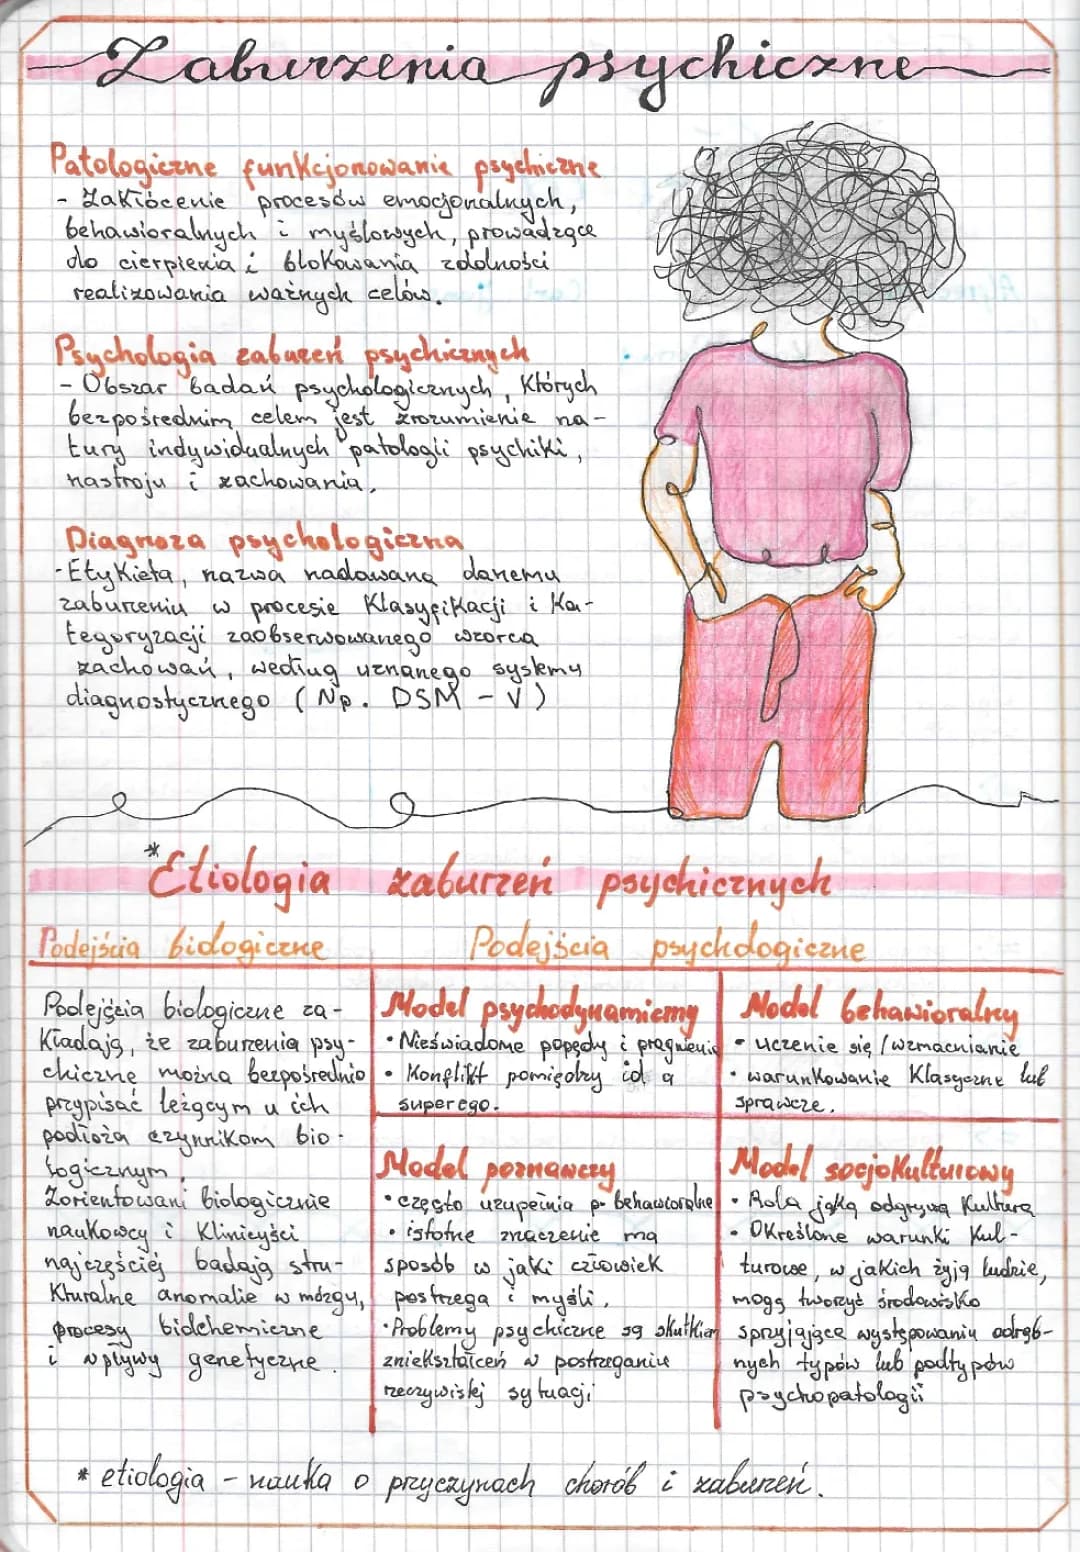 Zaburzenia psychiczne
Patologiczne funkcjonowanie psychiczne
- Zakłócenie procesów emocjonalnych,
behawioralnych i myślowych, prowadzące
do cierpienia i blokowania zdolności
realizowania ważnych celów.
Psychologia zaburzeń psychicznych
- Obszar badań psychologicznych, których
bezpośrednim celem jest zrozumienie na-
tury indywidualnych patologii psychiki,
nastroju i zachowania.
Diagnoza psychologiczna
- Etykieta, nazwa nadawana danemu
zaburzeniu w procesie klasyfikacji i ka-
tegoryzacji zaobserwowanego wzorca
zachowań, według uznanego systemu
diagnostycznego (Np. DSM - V)
*Etiologia zaburzeń psychicznych
Podejścia biologiczne
Podejścia biologiczne za-
kładają, że zaburzenia psy-
chiczne można bezpośrednio
przypisać leżącym u ich
podłoża czynnikom bio-
logicznym.
Zorientowani biologicznie
naukowcy i klinicyści
najczęściej badają stru-
kturalne anomalie w mózgu,
procesy biochemiczne
i wpływy genetyczne.
Podejścia psychologiczne
Model psychodynamiczny
• Nieświadome popędy i pragnienia
• Konflikt pomiędzy id a
superego.
Model behawioralny
- uczenie się / wzmacnianie
• warunkowanie klasyczne lub
sprawcze.
Model poznawczy
• często uzupełnia p. behawioralne
• istotne znaczenie ma
sposób w jaki człowiek
postrzega i myśli.
• Problemy psychiczne są skutkiem
zniekształceń w postrzeganiu
rzeczywistej sytuacji
Model socjokulturowy
• Rola jaką odgrywa kultura
• Określone warunki kul-
turowe, w jakich żyją ludzie,
mogą tworzyć środowisko
sprzyjające występowaniu odręb-
nych typów lub podtypów
psychopatologii
* etiologia - nauka o przyczynach chorób i zaburzeń.